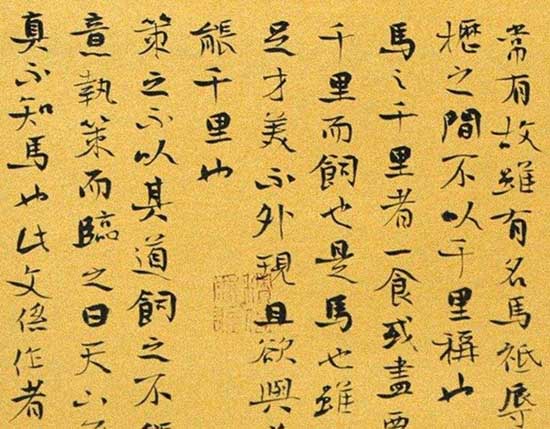 常有故雖有名馬祗辱
櫪之間不以千里稱也
馬之千里者一食或盡
千里而飼也是馬也雖
足才美不外現且欲與
能千里也
策之不以其道飼之不能
意執策而臨之曰天下
真不知馬也此文係作者